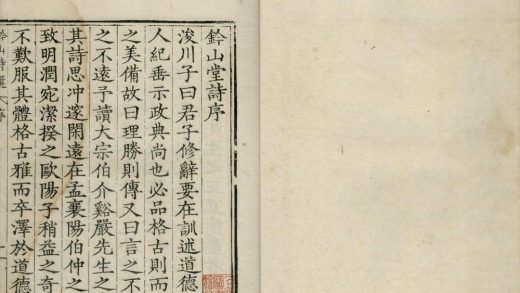 鈐山堂詩序
浚川子曰君子修辭要在訓述道德
人紀垂示政典尚也必品格古則而
之美備故曰理勝則傳又曰言之不
之不遠予讀大宗伯介谿嚴先生之
其詩思冲邃閑遠在孟襄陽伯仲之
致明潤宛潔揆之歐陽子稍益之奇
不歎服其體格古雅而卒澤於道德
鈐山詩選 序